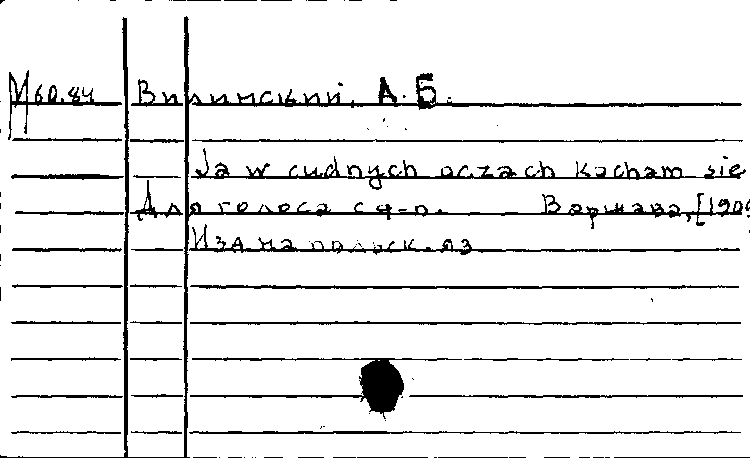 М60.84 Вилинский, А. Б.
Ja w cudnych oczach kocham sie
Для голоса с ф-п. Варшава, [190
Изд. на польск. яз.